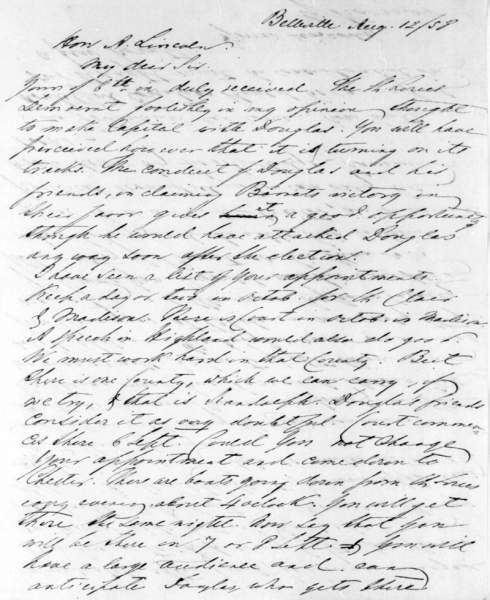 Belleville Aug. 12/58
Hon A. Lincoln
My dear Sir.
Yours of 8th is duly received. The St. Louis
Democrat foolishly in my opinion thought
to make Capital with Douglas. You will have
perceived however that it is turning on its
tracks. The conduct of Douglas and his
friends, in claiming Barrets victory in
their favor gives it a good opportunity
though he would have attacked Douglas
any way soon after the election.
I have seen a list of your appointments
Keep a day or two in octob. for St. Clair
& Madison. There is Court in octob. in Madison
A speech in Highland would also do good.
We must work hard in that County. But
there is one County, which we can carry, if
we try, & that is Randolph. Douglas friends
consider it as very doubtful. Court commen-
ces there 6 Sept. Could you not change
your appointment and come down to
Chester. There are boats going down from St. Louis
every evening about 4 oclock. You will get
there the same night. Now say that you
will be there on 7 or 8 Sept. & you will
have a large audience and can
anticipate Douglas, who gets there